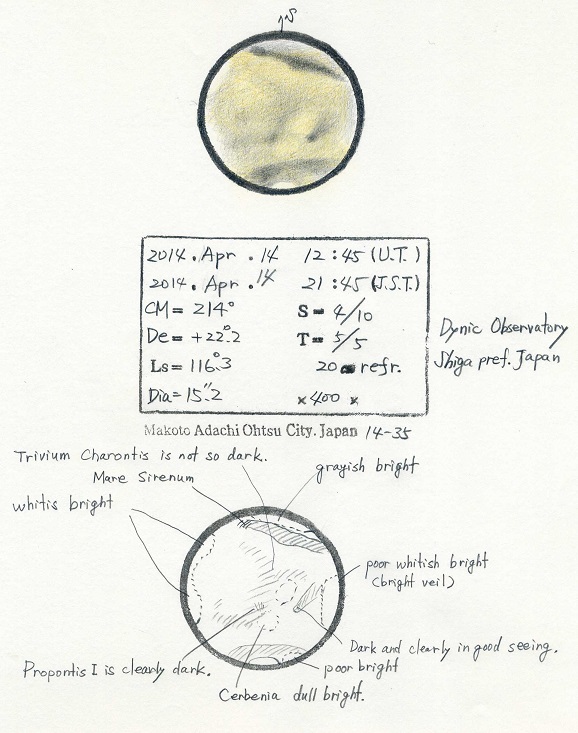 S
2014. Apr. 14 12:45 (U.T.)
2014. Apr. 14 21:45 (J.S.T.)
CM= 214° S= 4/10
De= +22°.2 T= 5/5
Ls= 116°.3 20 refr.
Dia= 15".2 ×400 ×
Dynic Observatory
Shiga pref. Japan
Makoto Adachi Ohtsu City. Japan 14-35
Trivium Charontis is not so dark.
grayish bright
Mare Sirenum
whitis bright
poor whitish bright
(bright veil)
Dark and clearly in good seeing.
Propontis I is clearly dark.
poor bright
Cerbenia dull bright.